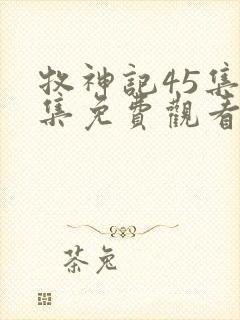 牧神記45集
集免費觀看
茶兔